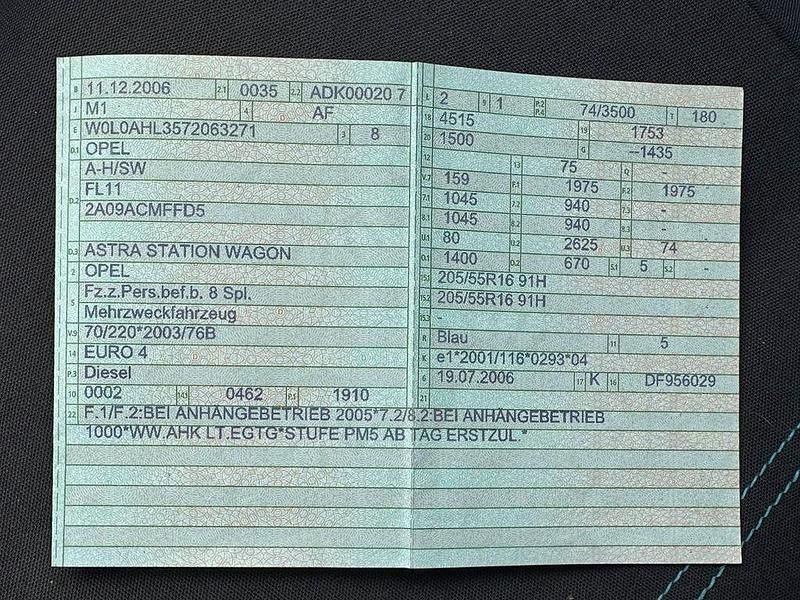 B 11.12.2006 2.1 0035 2.2 ADK00020 7
J M1 4 AF
E W0L0AHL3572063271 3 8
D.1 OPEL
A-H/SW
D.2 FL11
2A09ACMFFD5
D.3 ASTRA STATION WAGON
2 OPEL
5 Fz.z.Pers.bef.b. 8 Spl.
Mehrzweckfahrzeug
V.9 70/220*2003/76B
14 EURO 4
P.3 Diesel
10 0002 14.1 0462 P.1 1910
L 2 9 1 P.2 P.4 74/3500 T 180
18 4515 19 1753
20 1500 G --1435
12 13 75 Q -
V.7 159 F.1 1975 F.2 1975
7.1 1045 7.2 940 7.3 -
8.1 1045 8.2 940 8.3 -
U.1 80 U.2 2625 U.3 74
O.1 1400 O.2 670 S.1 5 S.2 -
15.1 205/55R16 91H
15.2 205/55R16 91H
15.3 -
R Blau 11 5
K e1*2001/116*0293*04
6 19.07.2006 17 K 16 DF956029
21
22 F.1/F.2:BEI ANHÄNGEBETRIEB 2005*7.2/8.2:BEI ANHÄNGEBETRIEB
1000*WW.AHK LT.EGTG*STUFE PM5 AB TAG ERSTZUL.*